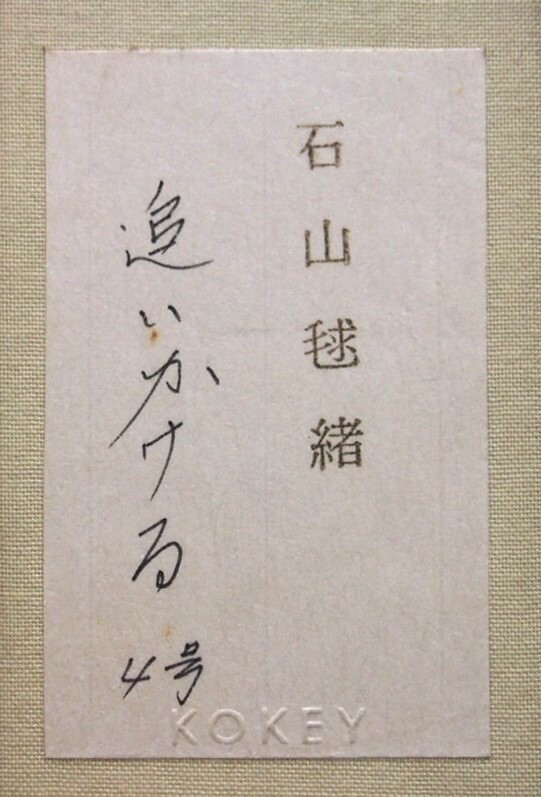 石山毬緒
追いかける
4号
KOKEY